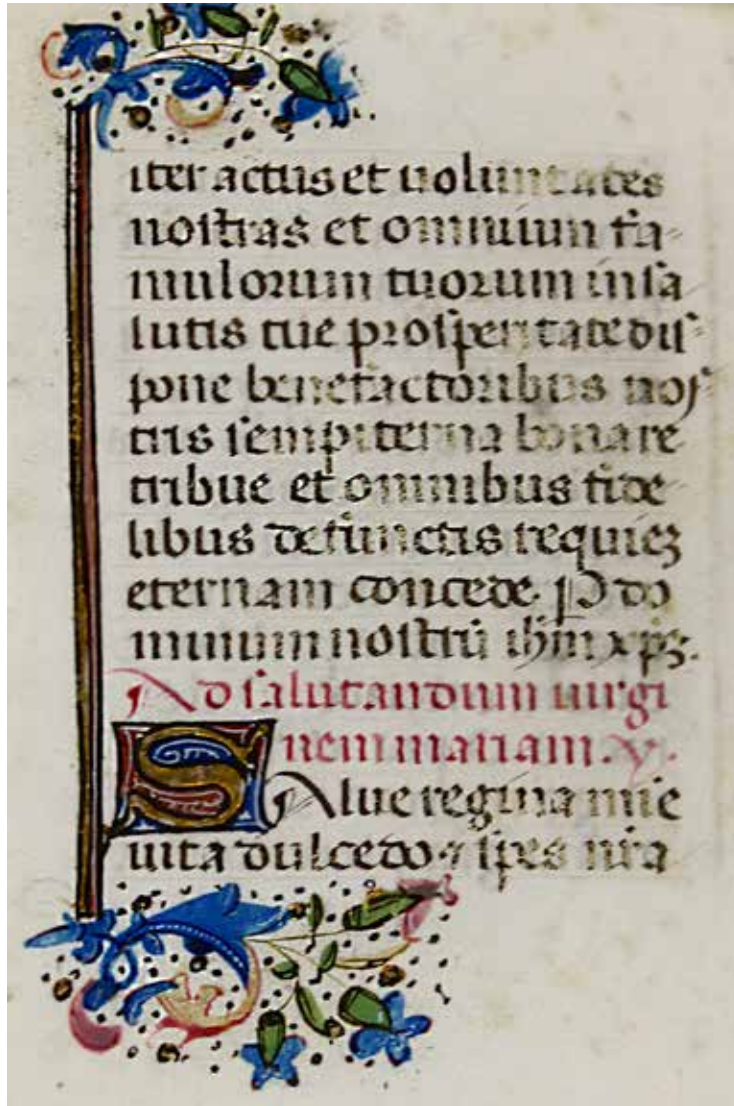 iter actus et uoluntates
nostras et omnium fa
mulorum tuorum in sa
lutis tue prosperitate dis
pone benefactoribus nos
tris sempiterna bona re
tribue et omnibus fide
libus defunctis requiez
eternam concede. P do
minum nostrū ihm xpz.
Ad salutandum uirgi
nem mariam. v.
Salue regina mīe
uita dulcedo & spes nr̄a